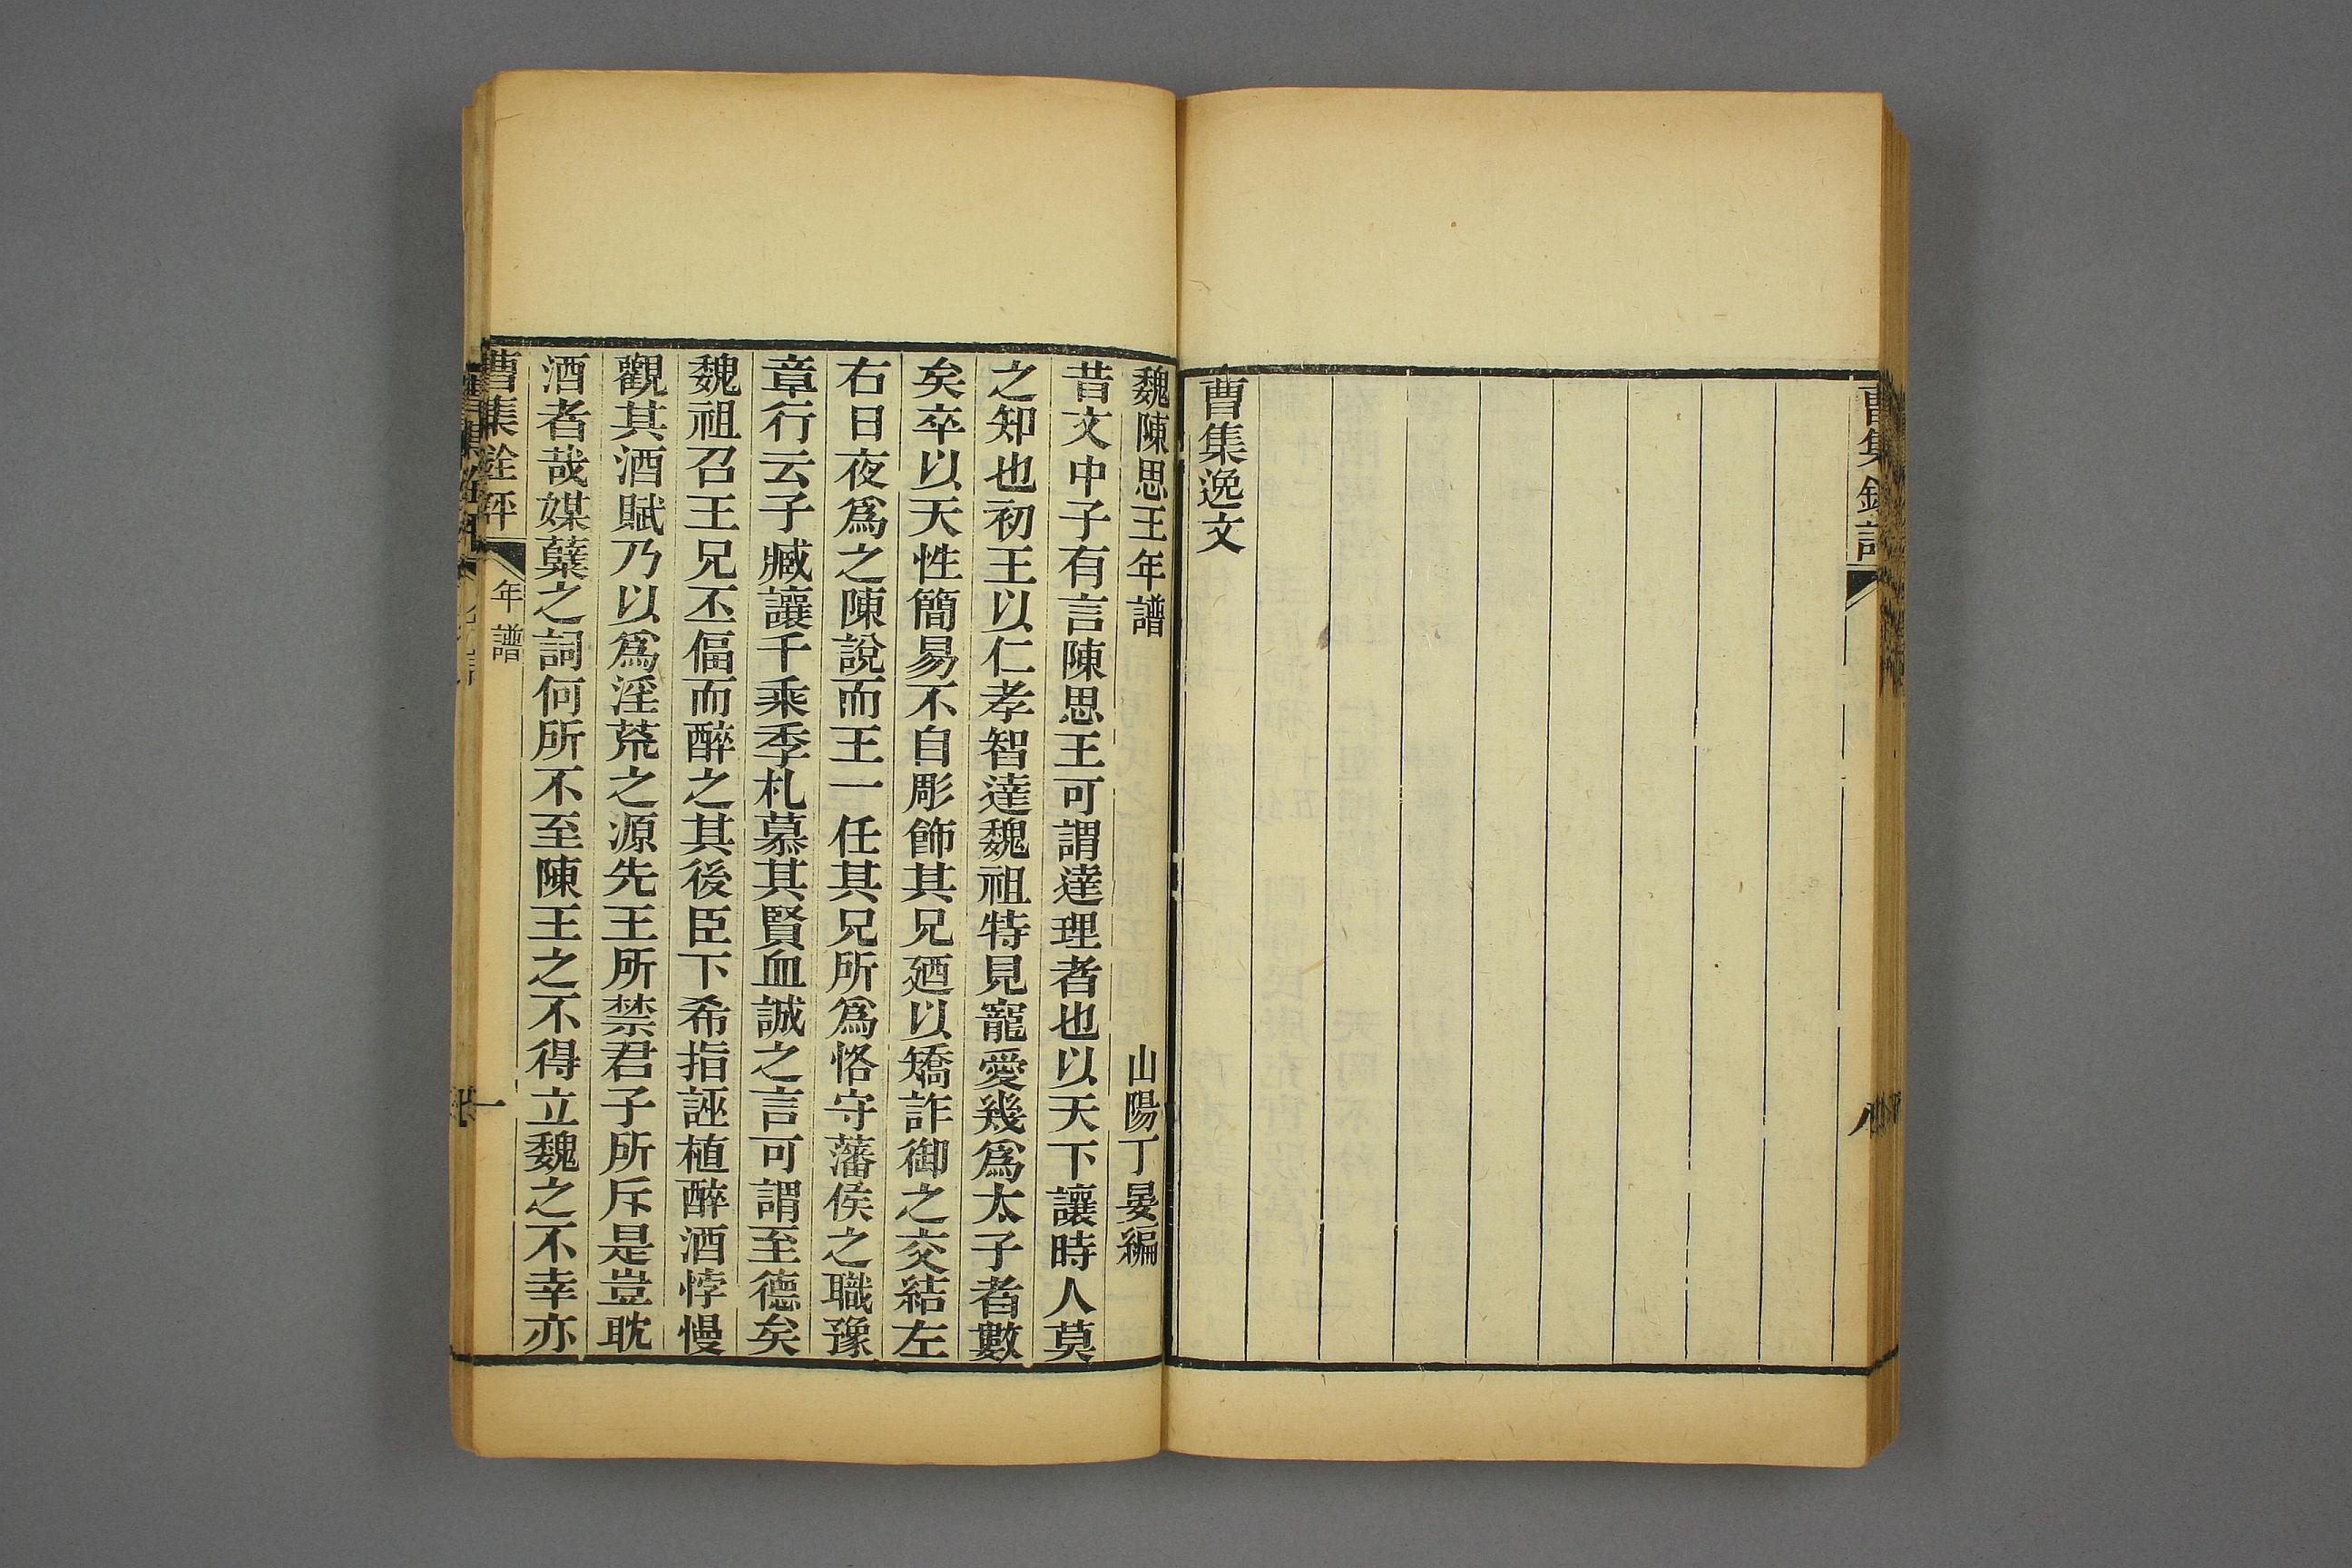 曹集逸文
八
魏陳思王年譜
山陽丁晏編
昔文中子有言陳思王可謂達理者也以天下讓時人莫
之知也初王以仁孝智達魏祖特見寵愛幾爲太子者數
矣卒以天性簡易不自彫飾其兄廼以矯詐御之交結左
右日夜爲之陳說而王一任其兄所爲恪守藩侯之職豫
章行云子臧讓千乘季札慕其賢血誠之言可謂至德矣
魏祖召王兄丕偪而醉之其後臣下希指誣植醉酒悖慢
觀其酒賦乃以爲淫荒之源先王所禁君子所斥是豈耽
酒者哉媒糵之詞何所不至陳王之不得立魏之不幸亦
曹集銓評
年譜
一